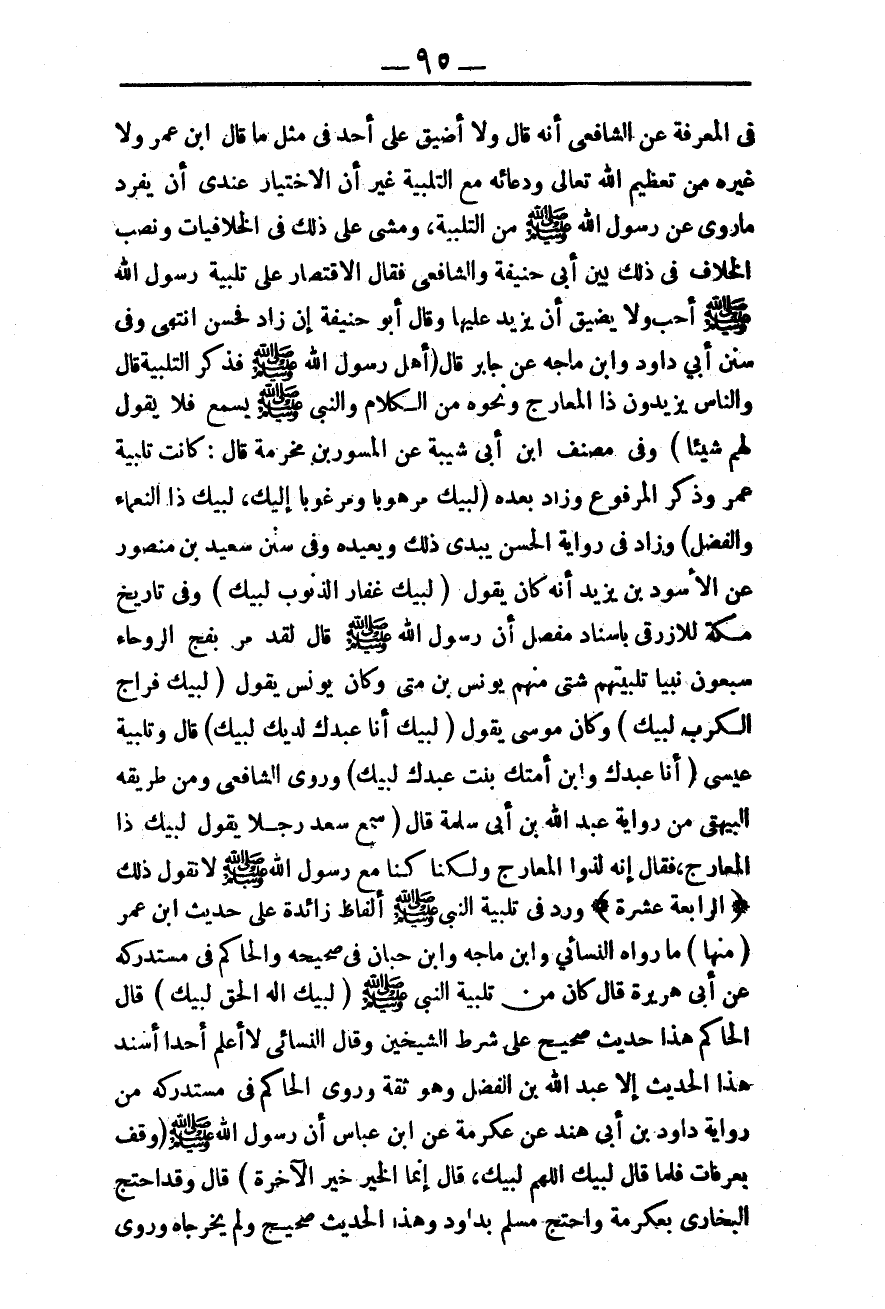 — ٩٥ —
فى المعرفة عن الشافعى أنه قال ولا أضيق على أحد فى مثل ما قال ابن عمر ولا
غيره من تعظيم الله تعالى ودعائه مع التلبية غير أن الاختيار عندى أن يفرد
ماروى عن رسول الله ﷺ من التلبية، ومشى على ذلك فى الخلافيات ونصب
الخلاف فى ذلك بين أبى حنيفة والشافعى فقال الاقتصار على تلبية رسول الله
ﷺ أحب ولا يضيق أن يزيد عليها وقال أبو حنيفة إن زاد فحسن انتهى وفى
سنن أبي داود وابن ماجه عن جابر قال (أهل رسول الله ﷺ فذكر التلبية قال
والناس يزيدون ذا المعارج ونحوه من الكلام والنبى ﷺ يسمع فلا يقول
لهم شيئا ) وفى مصنف ابن أبى شيبة عن المسور بن مخرمة قال : كانت تلبية
عمر وذكر المرفوع وزاد بعده (لبيك مرهوبا ومرغوبا إليك، لبيك ذا النعماء
والفضل) وزاد فى رواية الحسن يبدى ذلك ويعيده وفى سنن سعيد بن منصور
عن الأسود بن يزيد أنه كان يقول ( لبيك غفار الذنوب لبيك ) وفى تاريخ
مكة للازرقى باسناد مفصل أن رسول الله ﷺ قال لقد مر بفج الروحاء
سبعون نبيا تلبيتهم شتى منهم يونس بن متى وكان يونس يقول ( لبيك فراج
الكرب لبيك ) وكان موسى يقول ( لبيك أنا عبدك لديك لبيك) قال وتلبية
عيسى ( أنا عبدك وابن أمتك بنت عبدك لبيك) وروى الشافعى ومن طريقه
البيهقى من رواية عبد الله بن أبى سلمة قال ( سمع سعد رجلا يقول لبيك ذا
المعارج، فقال إنه لذوا المعارج ولكنا كنا مع رسول الله ﷺ لا نقول ذلك
﴿ الرابعة عشرة ﴾ ورد فى تلبية النبى ﷺ ألفاظ زائدة على حديث ابن عمر
( منها ) ما رواه النسائي وابن ماجه وابن حبان فى صحيحه والحاكم فى مستدركه
عن أبى هريرة قال كان من تلبية النبى ﷺ ( لبيك اله الحق لبيك ) قال
الحاكم هذا حديث صحيح على شرط الشيخين وقال النسائى لا أعلم أحدا أسند
هذا الحديث إلا عبد الله بن الفضل وهو ثقة وروى الحاكم فى مستدركه من
رواية داود بن أبى هند عن عكرمة عن ابن عباس أن رسول الله ﷺ (وقف
بعرفات فلما قال لبيك اللهم لبيك، قال إنما الخير خير الآخرة ) قال وقد احتج
البخارى بعكرمة واحتج مسلم بداود وهذا الحديث صحيح ولم يخرجاه وروى